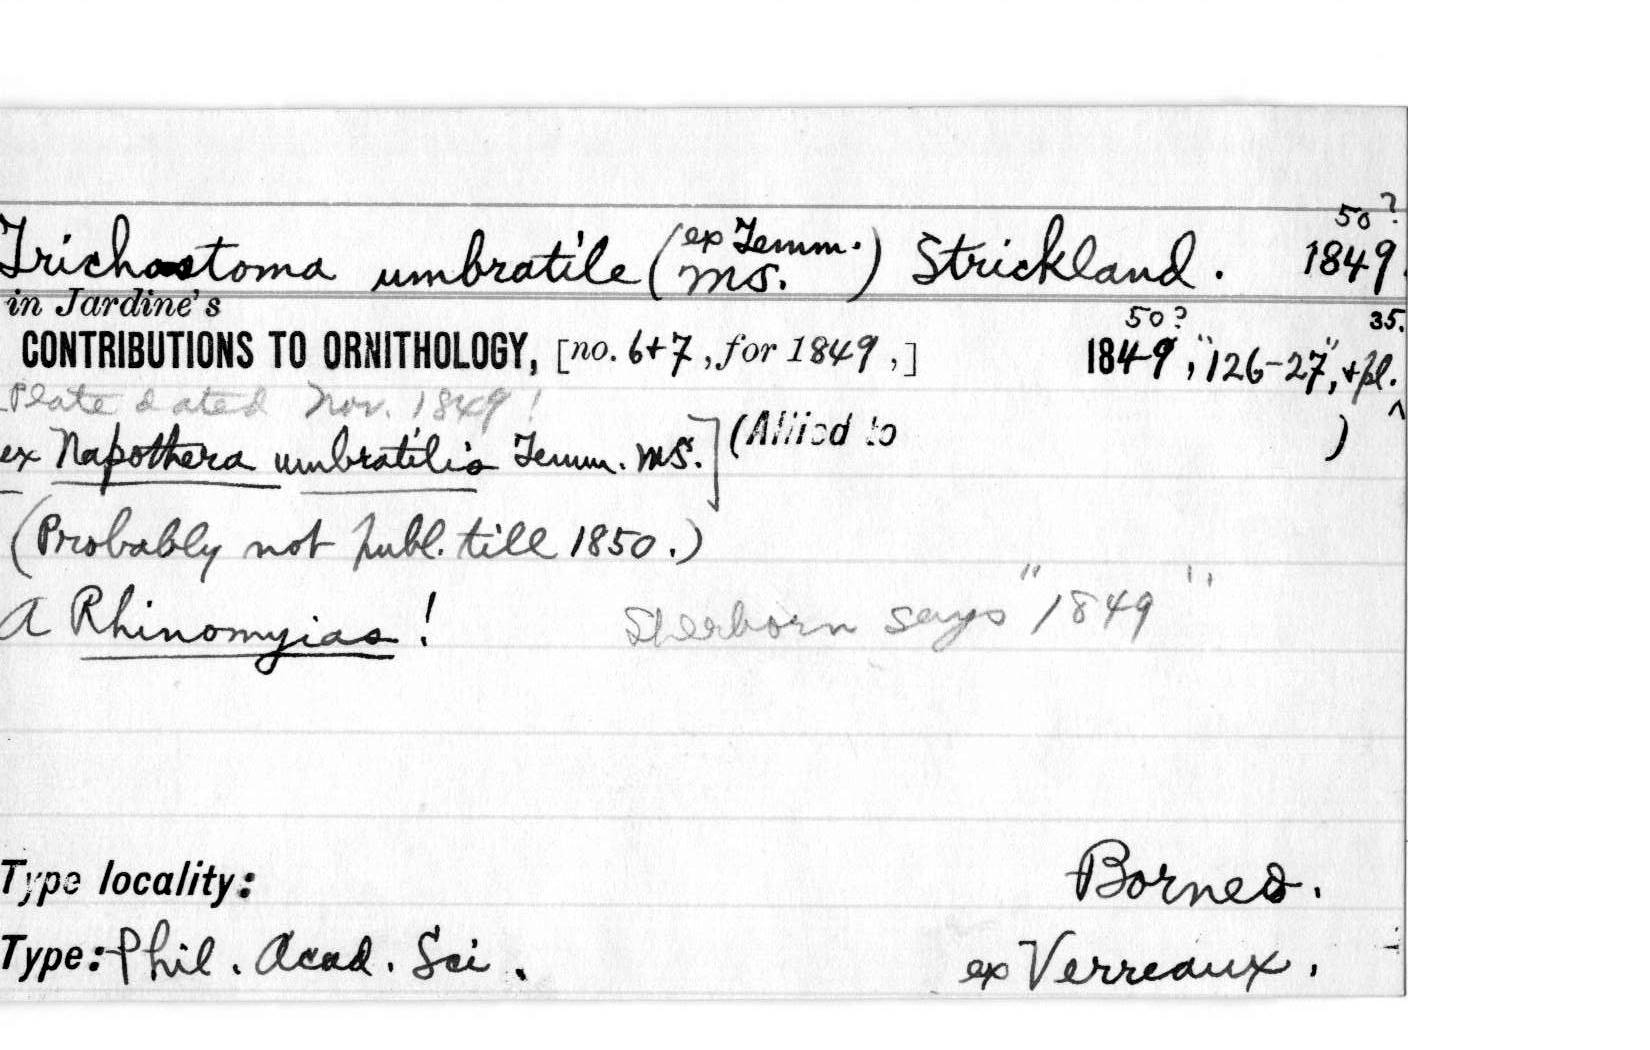 50?
Trichostoma umbratile (ex Temm. MS.) Strickland. 1849.
in Jardine's
50? 35.
CONTRIBUTIONS TO ORNITHOLOGY, [no. 6+7, for 1849,] 1849, "126-27", + pl. ^
Plate dated Nov. 1849!
ex Napothera umbratilis Temm. MS.] (Allied to )
(Probably not publ. till 1850.)
A Rhinomyias! Sherborn says "1849"
Type locality: Borneo.
Type: Phil. Acad. Sci. ex Verreaux.